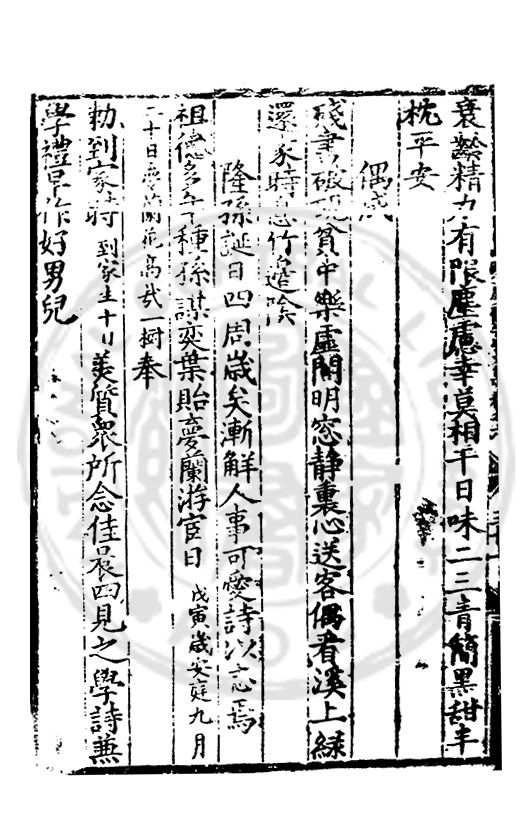 衰齡精力有限塵慮幸莫相干日味二三青簡黑甜半
枕平安
偶成
殘書破硯貧中樂虛閣明窓静裏心送客偶看溪上緑
還家時息竹邉陰
隆孫誕日四周歲矣漸解人事可愛詩以志焉
祖德多年種孫謀奕葉貽夢蘭游宦日戊寅歲安庭九月
二十日夢蘭花高貳一樹奉
勅到家時到家生十日美質衆所念佳晨四見之學詩兼
學禮早作好男兒